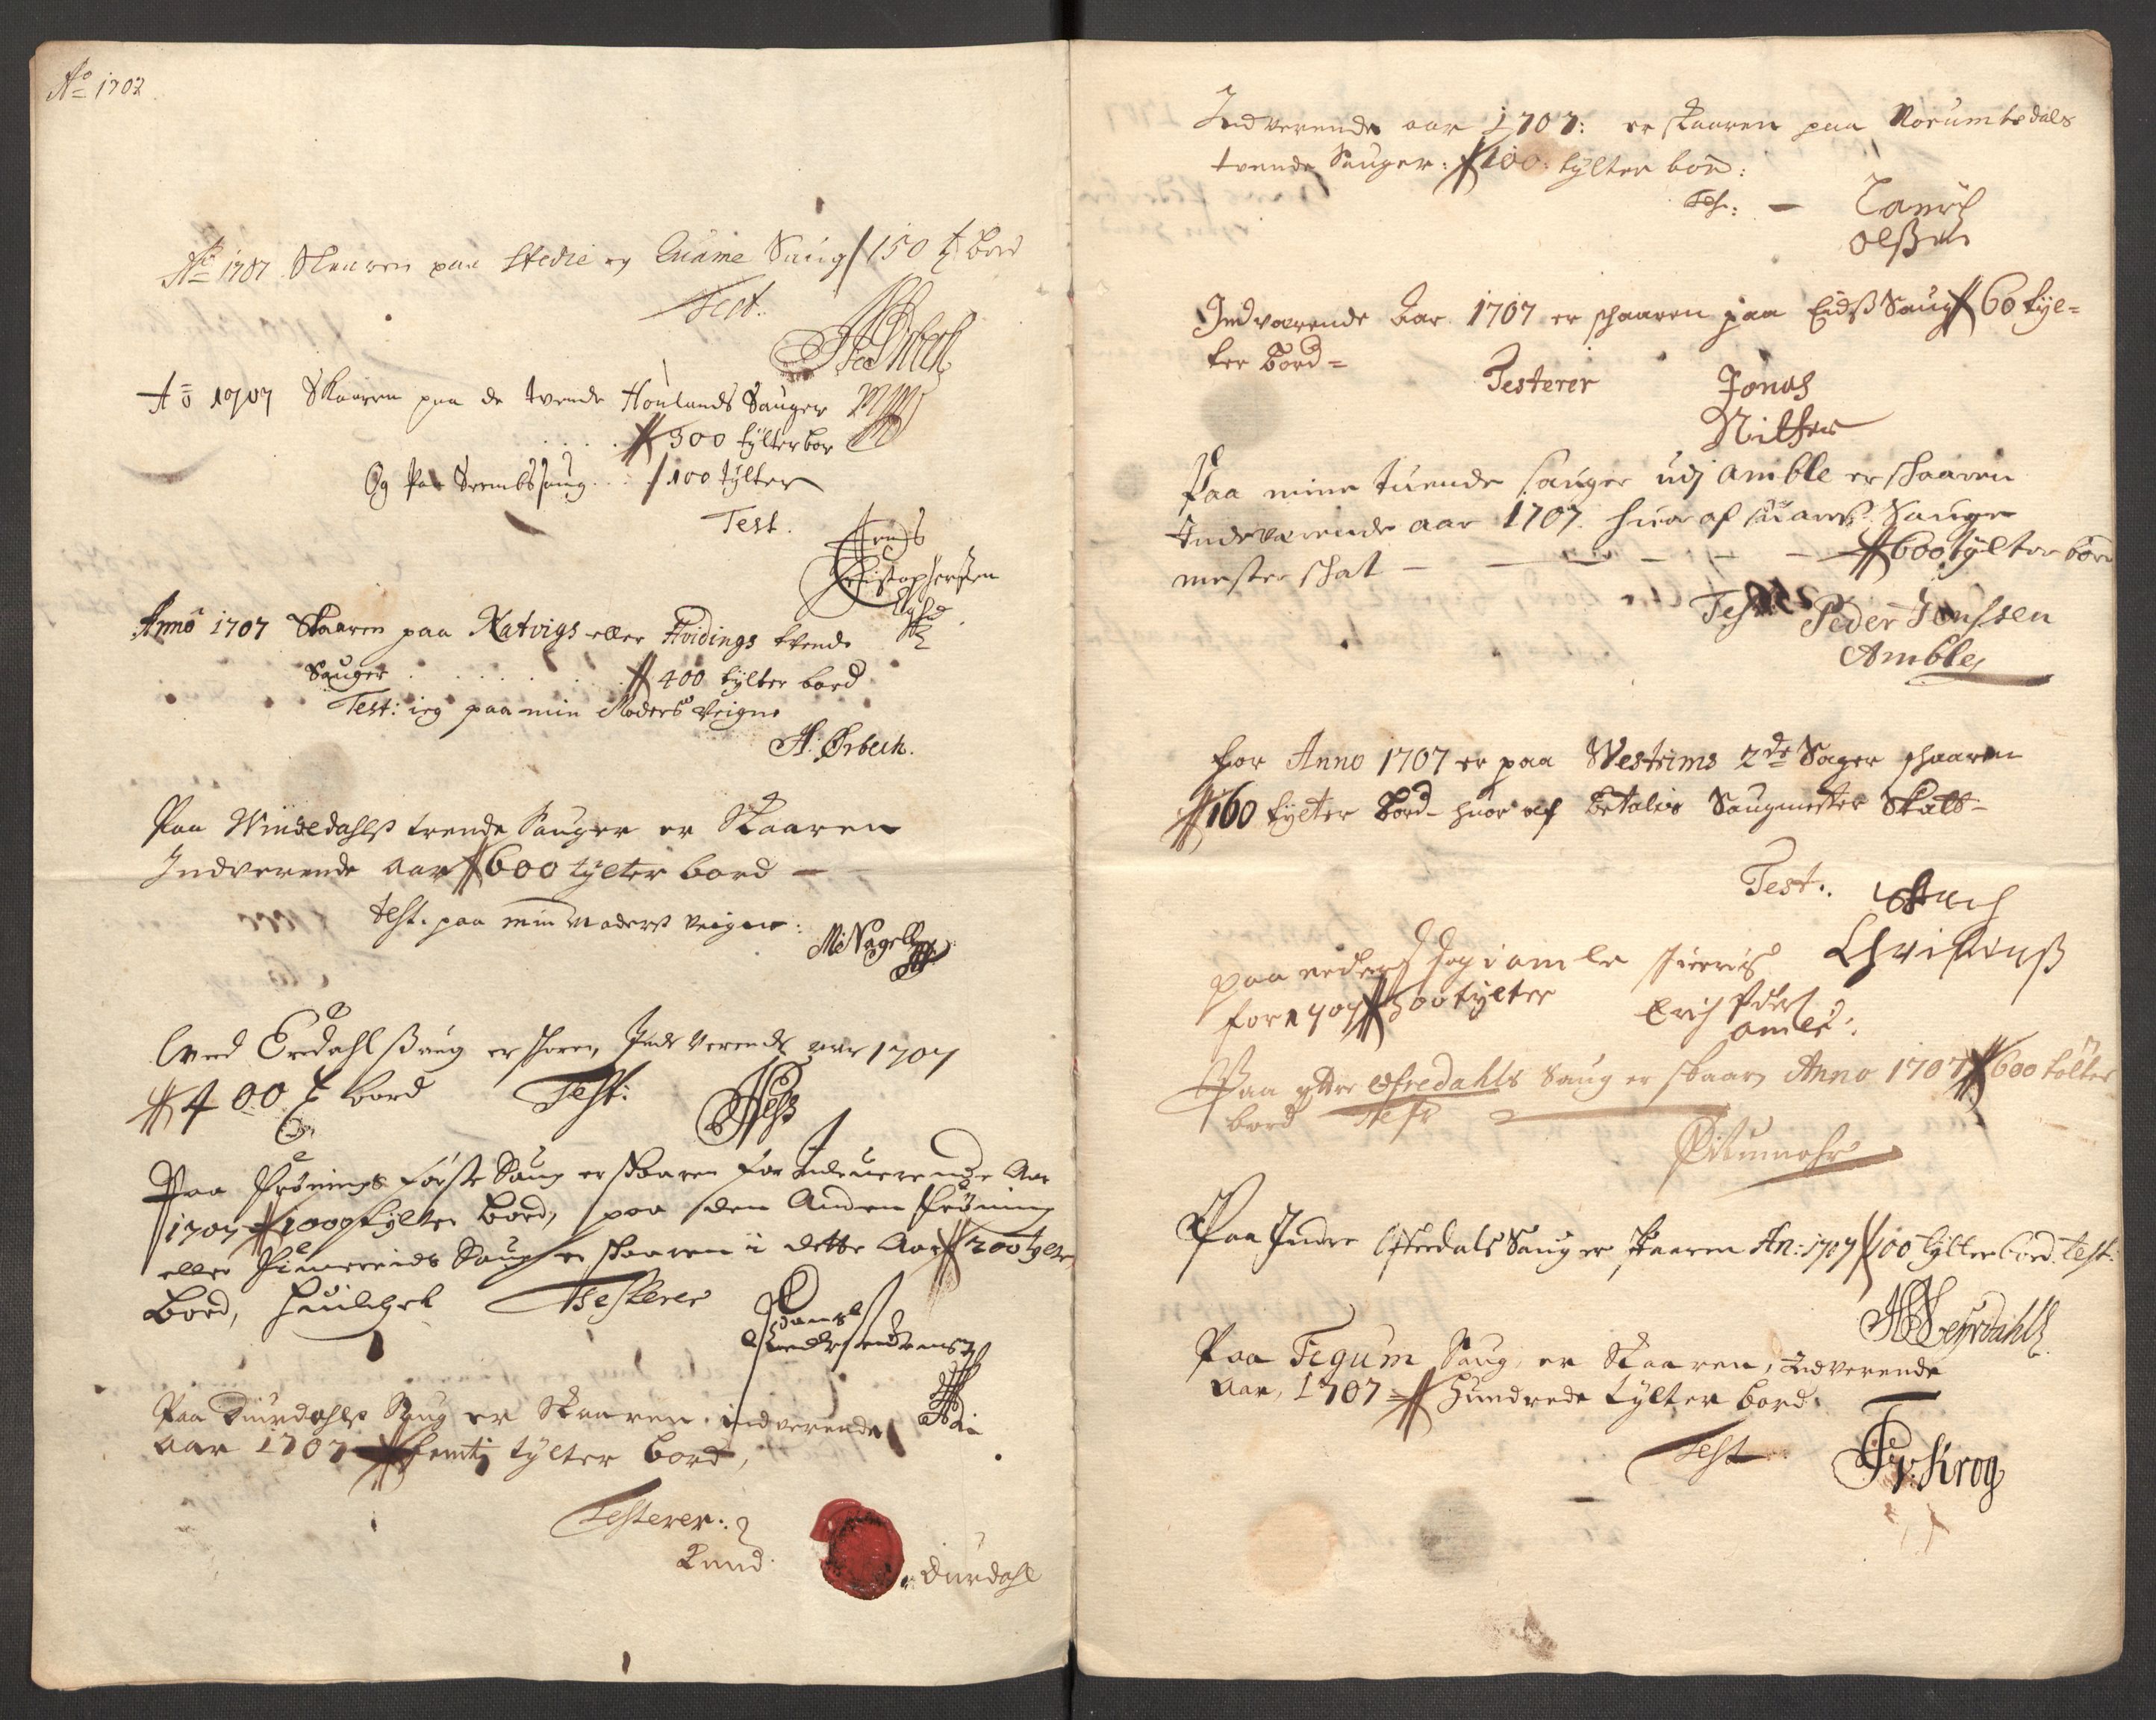 Ao 1707
Ao 1707 Skaaren paa Stedie og Quame Saug 150 t bord
Test.
Ao 1707 Skaaren paa de tvende Houlands Sauger
300 tylter bor
Og Paa Srembs saug ... 100 tylter
Test.
Christophersen
Anno 1707 Skaaren paa Natvigs eller Hvidings tvende
Sauger . . . . . . 400 tylter bord
Test: ieg paa min Moders Veigne
A. Ørbech.
Paa Windedahls trende Sauger er Skaaren
Indverende aar 600 tylter bord
test. paa min Moders Veigne:
M: Nagell
Ved Eredahls Saug er skoren Inde Verende aar 1707
400 t bord Test:
Paa Frønings første Saug er skaaren for Indeverende Aar
1707 1000 tylter Bord, paa den Anden Frøning
eller Saug er skaaren i dette Aar 200 tylter
Bord, huilchet Testerer
Paa Duurdahls Saug er Skaaren indverende
aar 1707 femti tylter bord,
Testerer:
Knud Durdahl
Indverende aar 1707: er skaaren paa Noeumbsdals
tvende Sauger: 100: tylter bord:
Test: Lauris
Olsen
Indværende Aar 1707 er schaaren paa Eidss Saug 60 tyl=
ter Bord=
Testerer Jonas
Paa mine tuende sauger udj Amble er schaaren
Indeværende aar 1707 huor af suares Sauge
mester schat 600 tylter bord
Testerer Peder Jenssen
Amble
For Anno 1707 er paa Westrims 2de Sager schaaren
160 tylter Bord huor af betales Saugmester Skatt
Test:
Christens
paa neder Sag i amle skieris
for 1707 300 tylter Erich Peders
amle:
Paa ytre Ofredahls Saug er skaaren Anno 1707 600 tolter
bord Test
Paa Indre Offredals Saug er skaaren An: 1707 100 tylter bord. test:
Paa Fegum Saug, er Skaaren, Indverende
Aar, 1707 Hundrede tylter bord
Test
F v: Krog